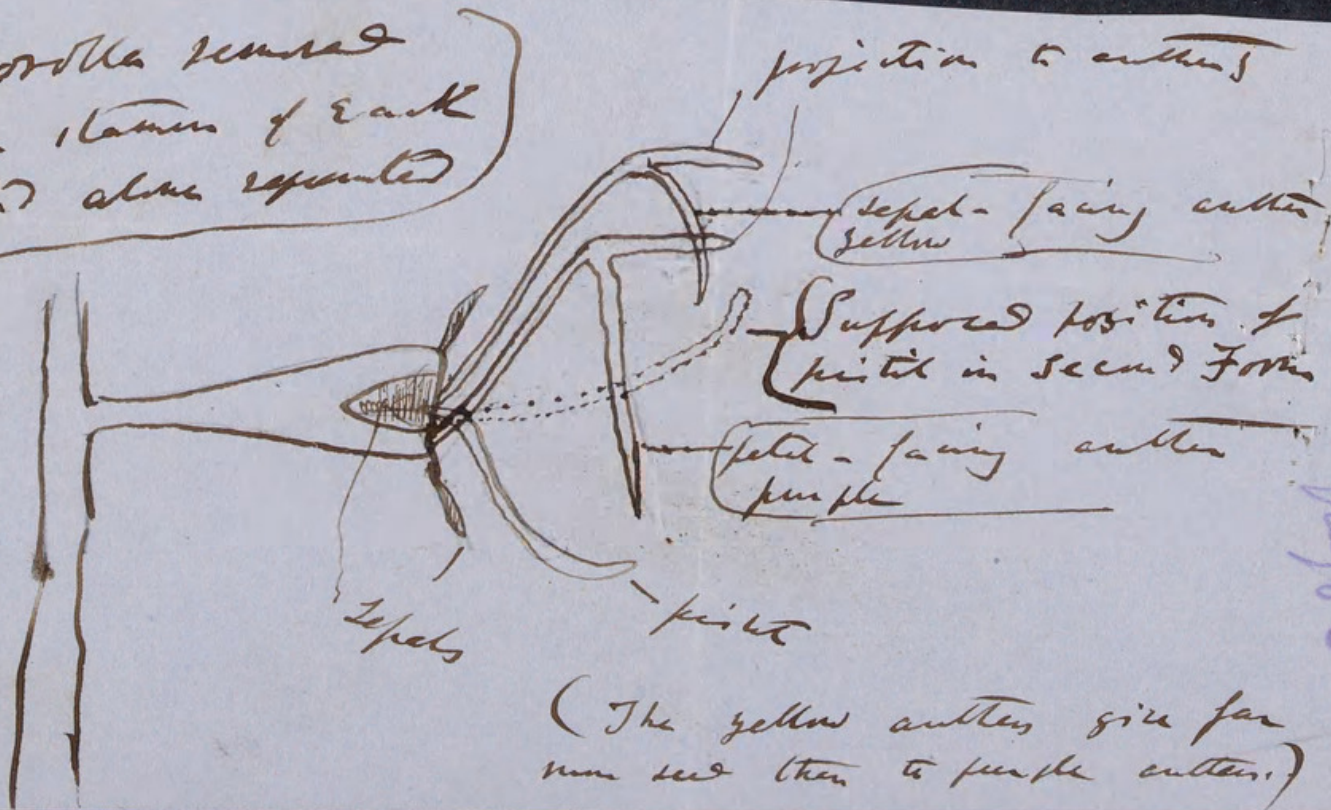 corolla removed
stamens of Each
alone represented
projection to anthers
sepal-facing anther
yellow
Supposed position of
pistil in Second Form
petal-facing anther
purple
Sepals
pistil
(The yellow anthers give far
more seed than the purple anthers.)